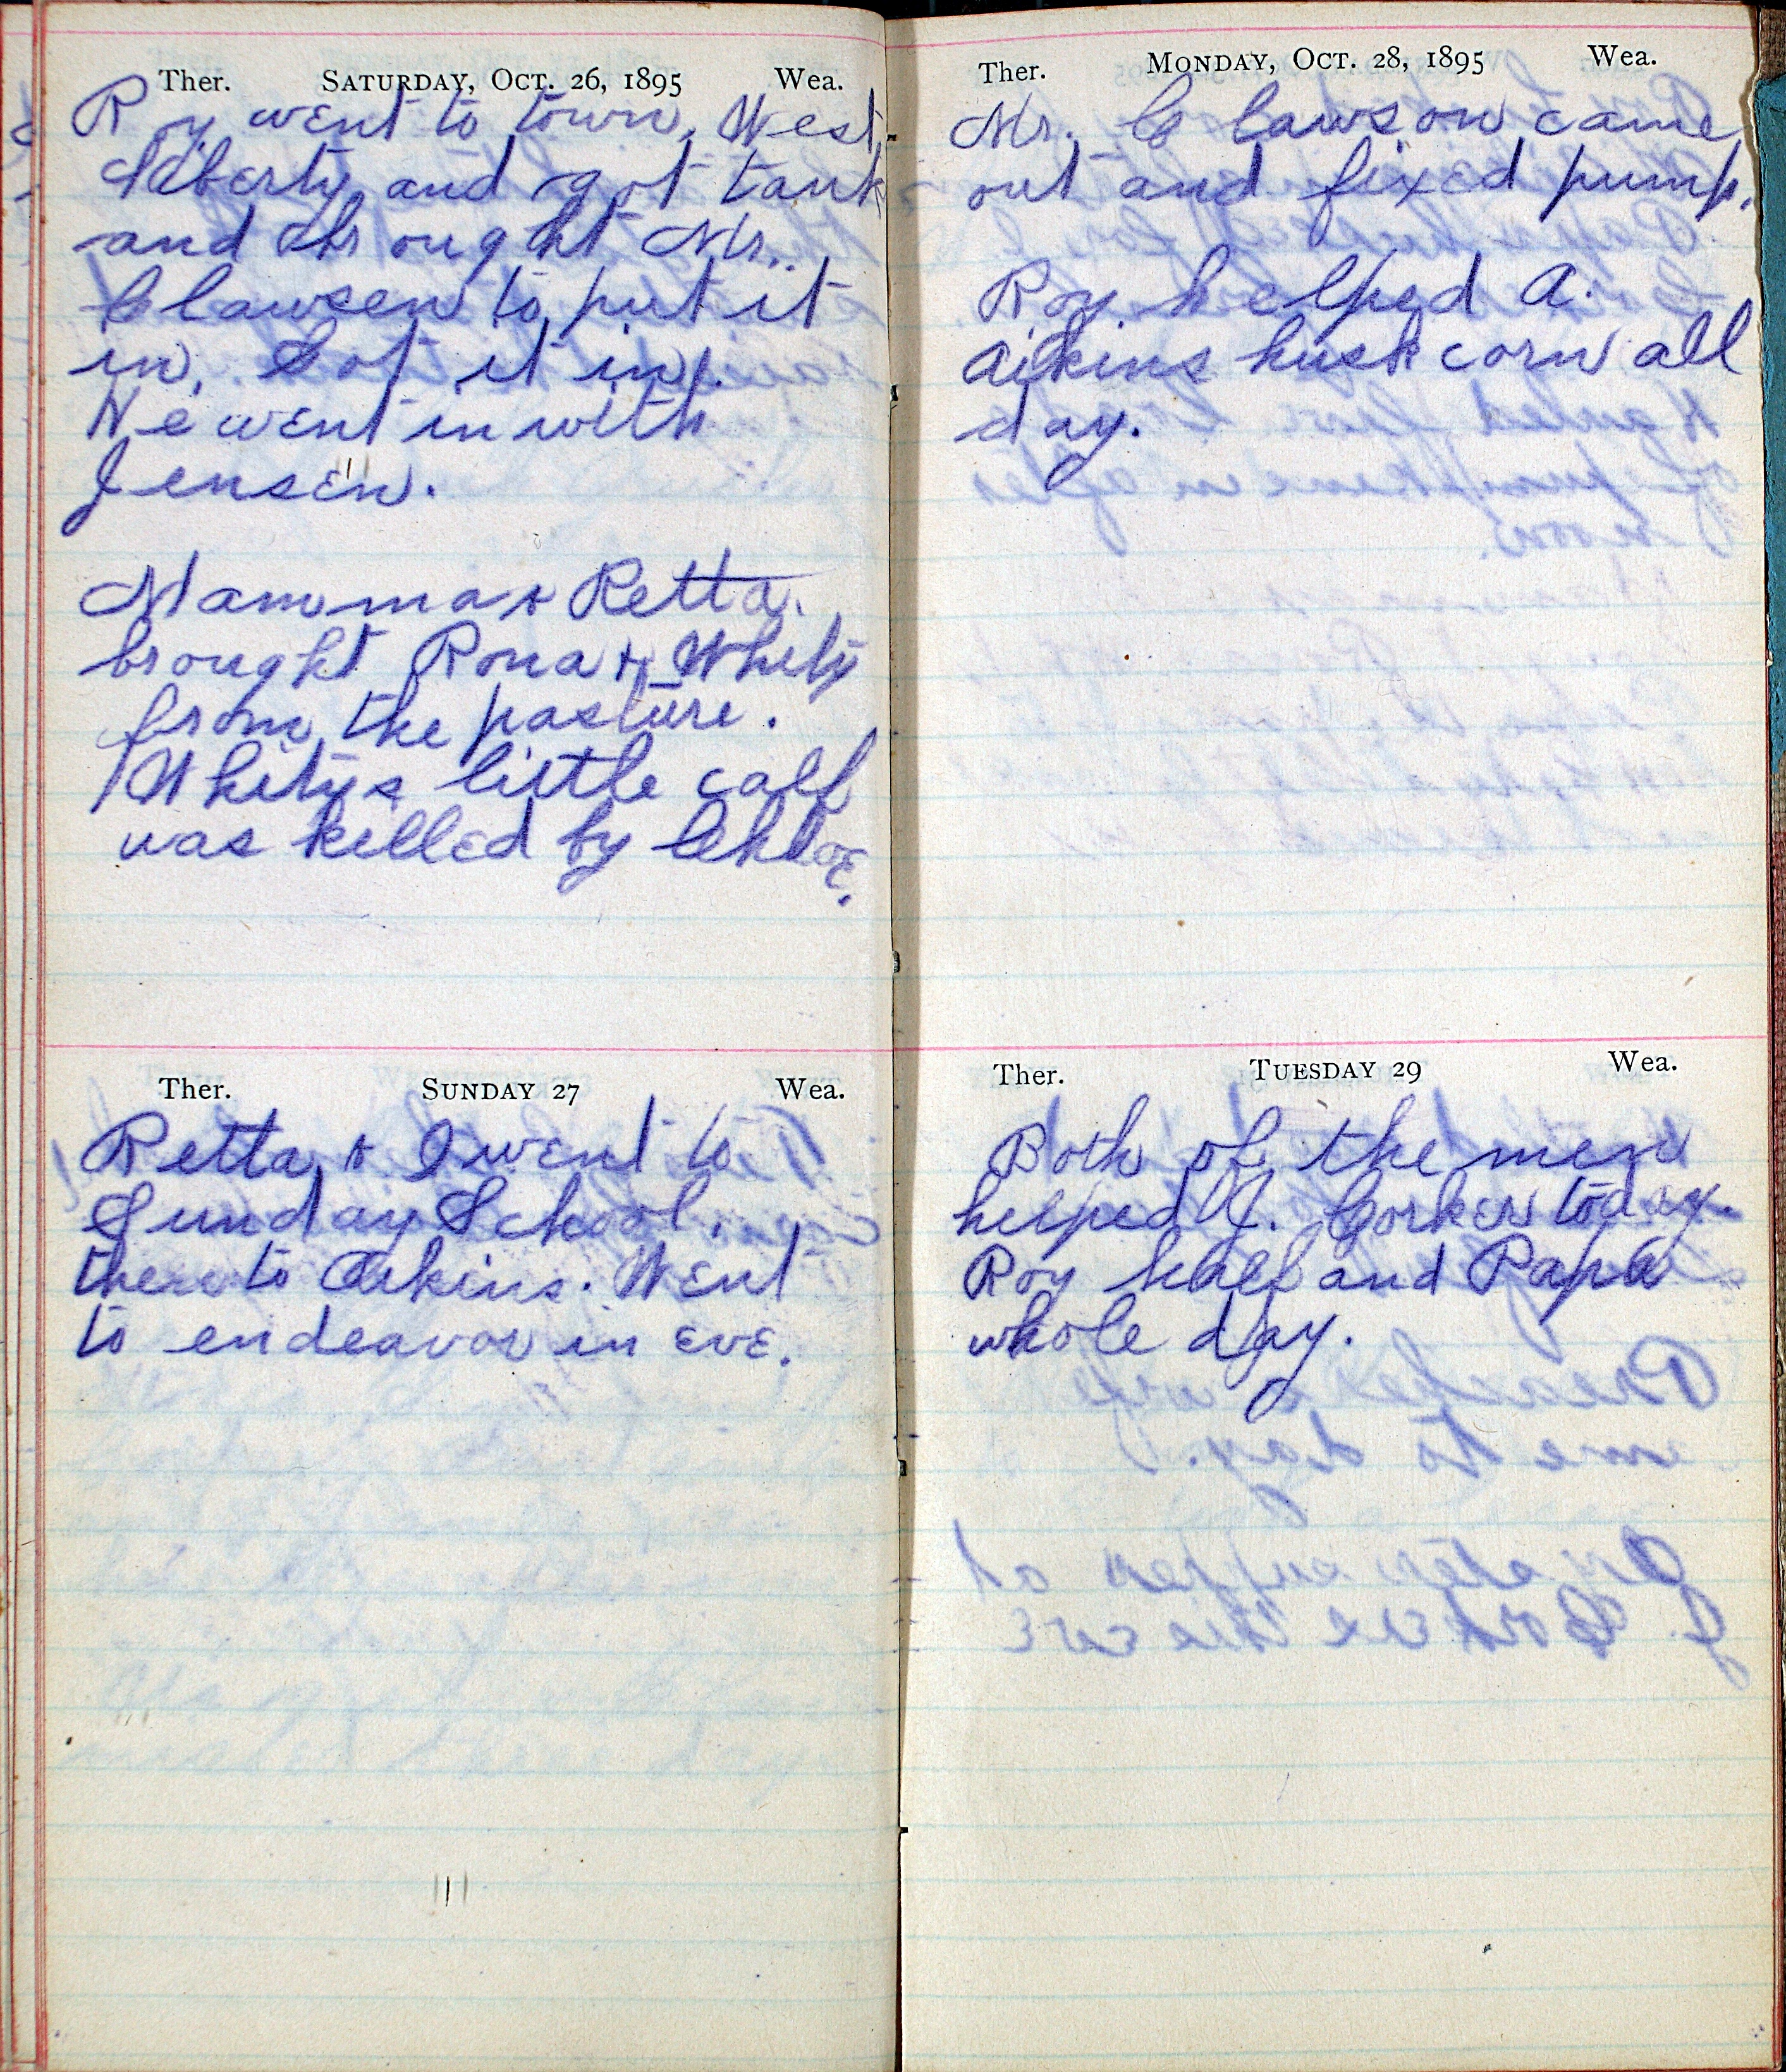 Ther. SATURDAY, OCT. 26, 1895 Wea.
Roy went to town, West
Liberty, and got tank
and brought Mr.
Clawsen to put it
in. Got it in.
We went in with
Jensen.
Mamma & Retta
brought Rona & Whity
from the pasture.
Whitys little calf
was killed by Chloe.
Ther. SUNDAY 27 Wea.
Retta & I went to
Sunday School,
then to Aikins. Went
to endeavor in eve.
Ther. MONDAY, OCT. 28, 1895 Wea.
Mr. Clawson came
out and fixed pump.
Roy helped A.
Aikins husk corn all
day.
Ther. TUESDAY 29 Wea.
Both of the men
helped J. Corker today.
Roy half and Papa
whole day.